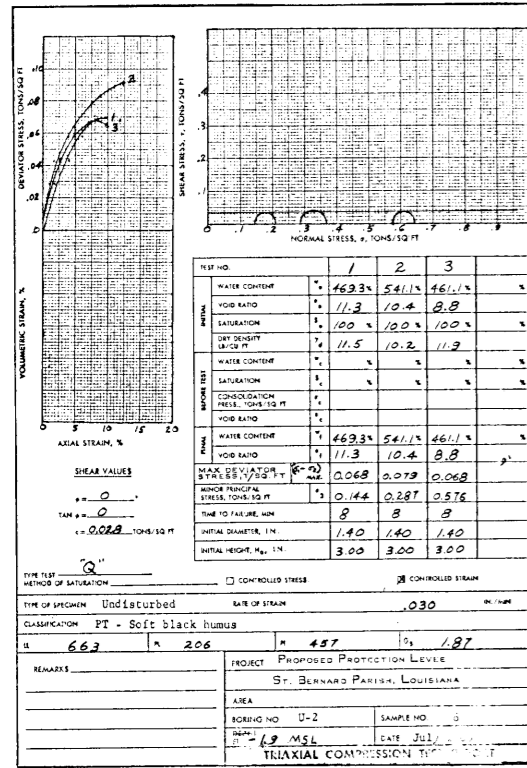 DEVIATOR STRESS, TONS/SQ FT
.10
.08
.06
.04
.02
.0
2
1
3
SHEAR STRESS, τ, TONS/SQ FT
.4
.3
.2
.1
0 .1 .2 .3 .4 .5 .6 .7 .8 .9 1
NORMAL STRESS, σ, TONS/SQ FT
VOLUMETRIC STRAIN, %
0 5 10 15 20
AXIAL STRAIN, %
TEST NO. 1 2 3
INITIAL
WATER CONTENT 469.3% 541.1% 461.1% %
VOID RATIO 11.3 10.4 8.8
SATURATION 100 % 100 % 100 % %
DRY DENSITY LB/CU FT 11.5 10.2 11.9
BEFORE TEST
WATER CONTENT % % % %
SATURATION % % % %
CONSOLIDATION PRESS., TONS/SQ FT
VOID RATIO
FINAL
WATER CONTENT 469.3% 541.1% 461.1%
VOID RATIO 11.3 10.4 8.8
MAX DEVIATOR STRESS, T/SQ. FT 0.068 0.079 0.068
MINOR PRINCIPAL STRESS, TONS/SQ FT σ3 0.144 0.287 0.576
TIME TO FAILURE, MIN 8 8 8
INITIAL DIAMETER, IN. 1.40 1.40 1.40
INITIAL HEIGHT, H₀, IN. 3.00 3.00 3.00
SHEAR VALUES
φ = 0
TAN φ = 0
c = 0.028 TONS/SQ FT
TYPE TEST "Q"
METHOD OF SATURATION
CONTROLLED STRESS
CONTROLLED STRAIN
TYPE OF SPECIMEN Undisturbed RATE OF STRAIN .030 IN./MIN
CLASSIFICATION PT - Soft black humus
LL 663 PL 206 PI 457 Gs 1.87
REMARKS
PROJECT PROPOSED PROTECTION LEVEE
ST. BERNARD PARISH, LOUISIANA
AREA
BORING NO U-2 SAMPLE NO
-1.9 MSL DATE July
TRIAXIAL COMPRESSION TEST